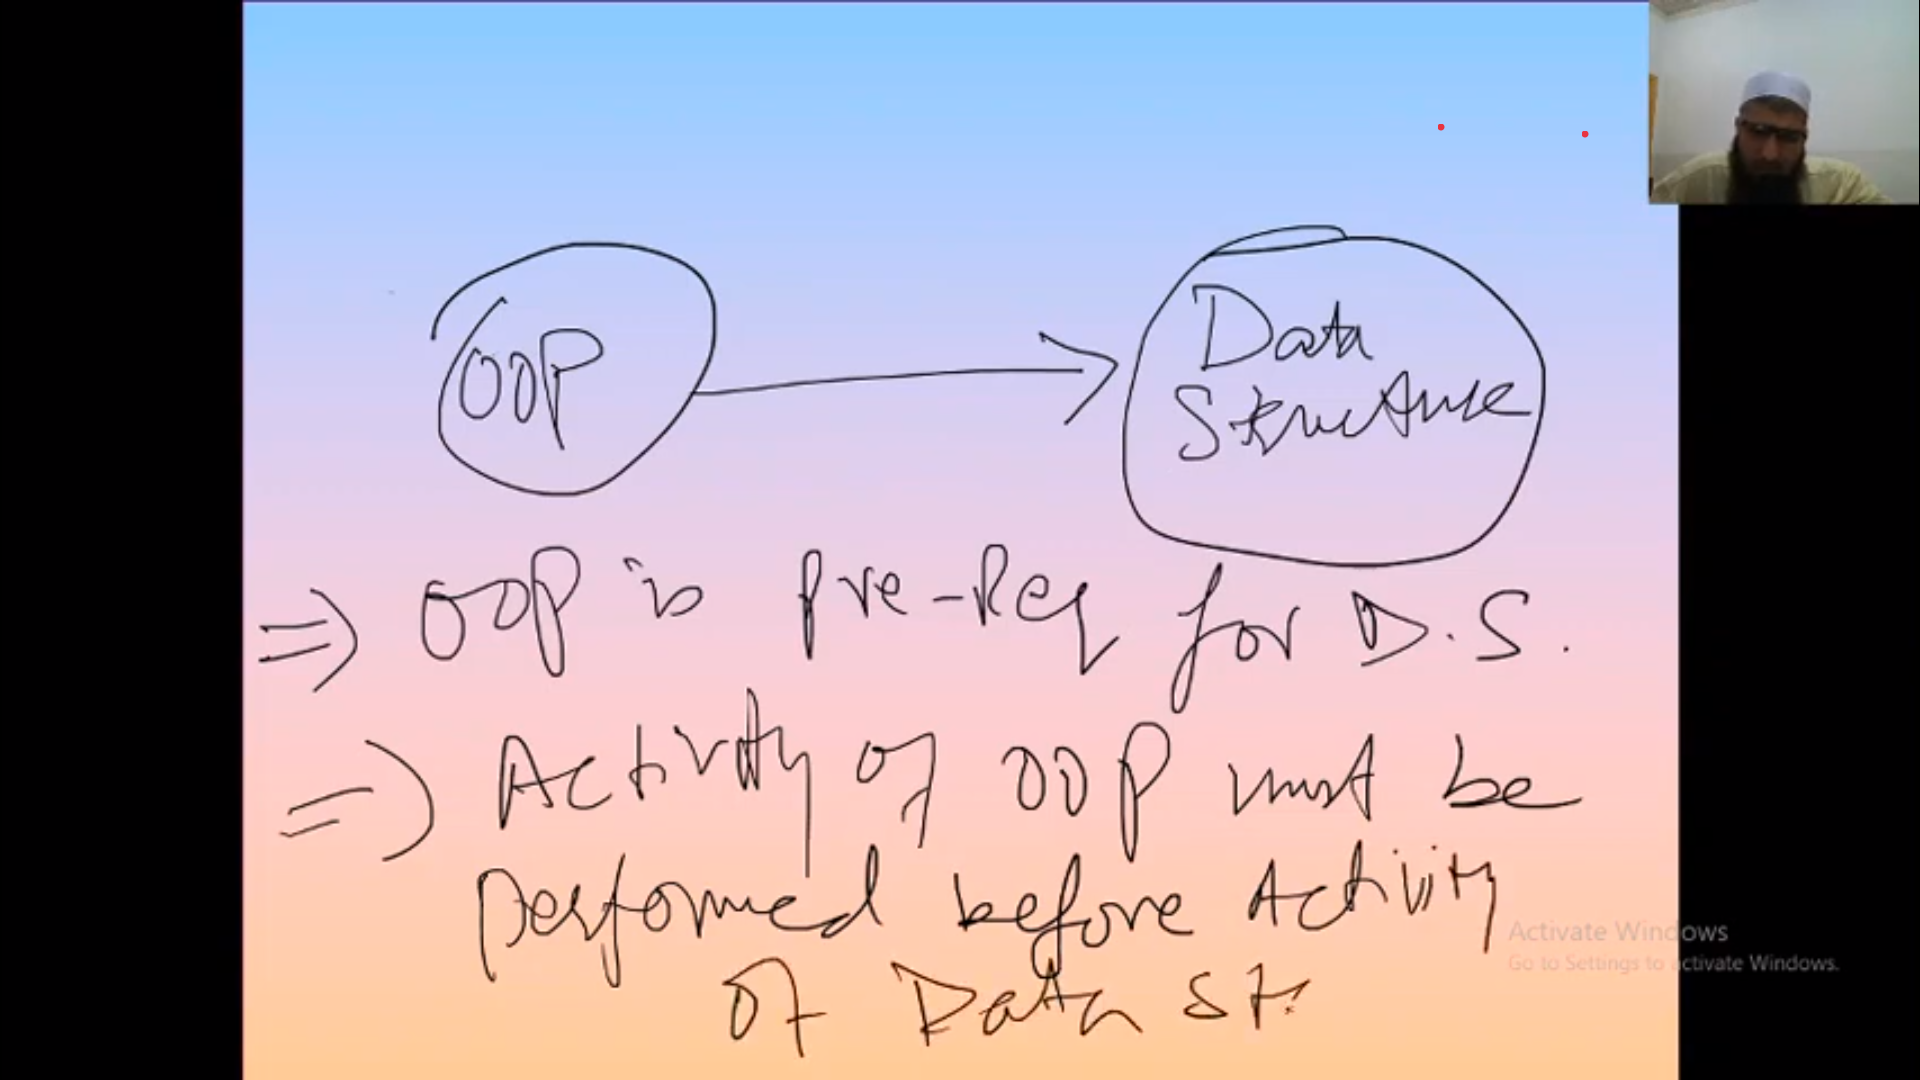 OOP
Data
Structure
=> OOP is Pre-Req for D.S.
=> Activity of OOP must be
performed before Activity
of Data St.
Activate Windows
Go to Settings to activate Windows.